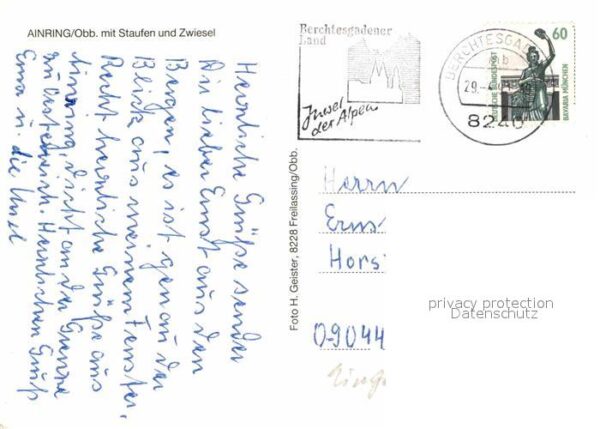 AINRING/Obb. mit Staufen und Zwiesel
Herrliche Grüße sendet
Dir lieber Ernst aus den
Bergen, es ist genau der
Blick aus meinem Fenster.
Recht herzliche Grüße aus
Ainring, dicht an der Grenze
zu Oesterreich. Herzlichen Gruß
Erna u. die
Foto H. Geister, 8228 Freilassing/Obb.
Berchtesgadener
Land
Juwel
der Alpen
BERCHTESGADEN
b
29.-4.
8240
60
DEUTSCHE BUNDESPOST
BAVARIA MÜNCHEN
Herrn
Erns
Hors
privacy protection
Datenschutz
O-9044